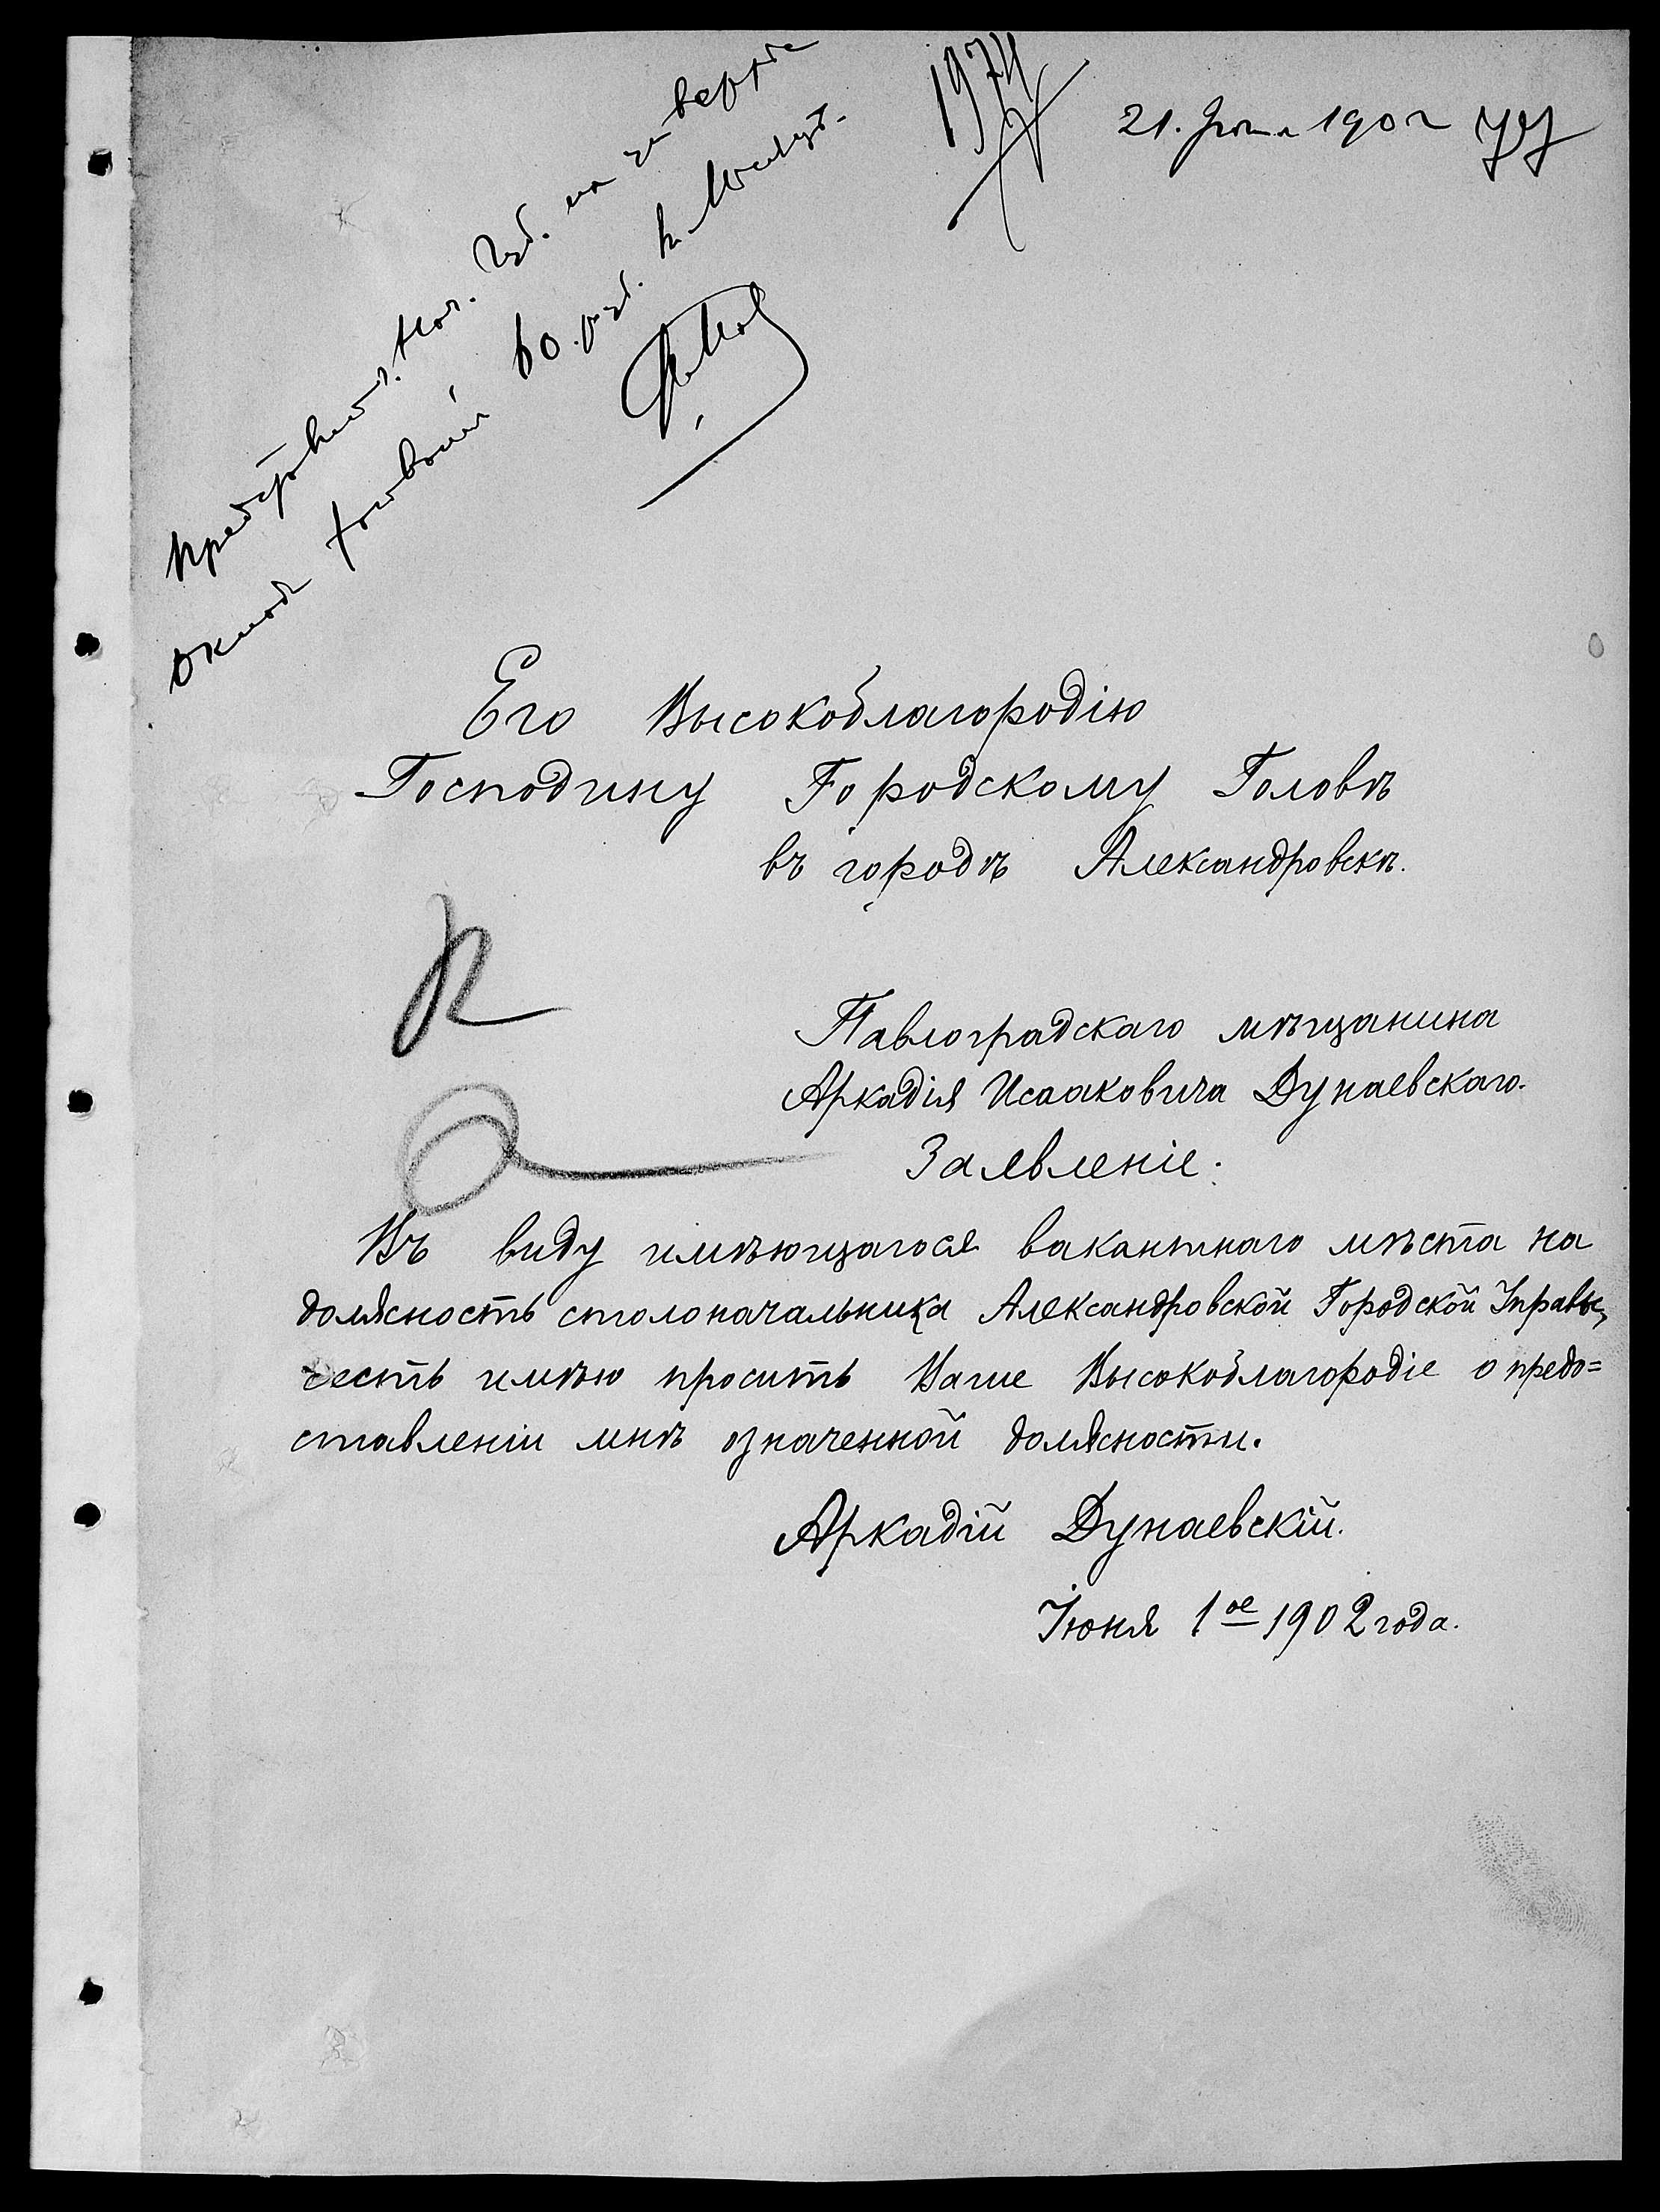 1974
21. Іюня 1902
77
на
60 руб.
Его Высокоблагородію
Господину Городскому Головѣ
въ городѣ Александровскѣ.
Павлоградскаго мѣщанина
Аркадія Исааковича Дунаевскаго.
Заявленіе.
Въ виду имѣющагося вакантнаго мѣста на
должность столоначальника Александровской Городской Управы,
честь имѣю просить Ваше Высокоблагородіе о предо=
ставленіи мнѣ означенной должности.
Аркадій Дунаевскій.
Іюня 1ое 1902 года.